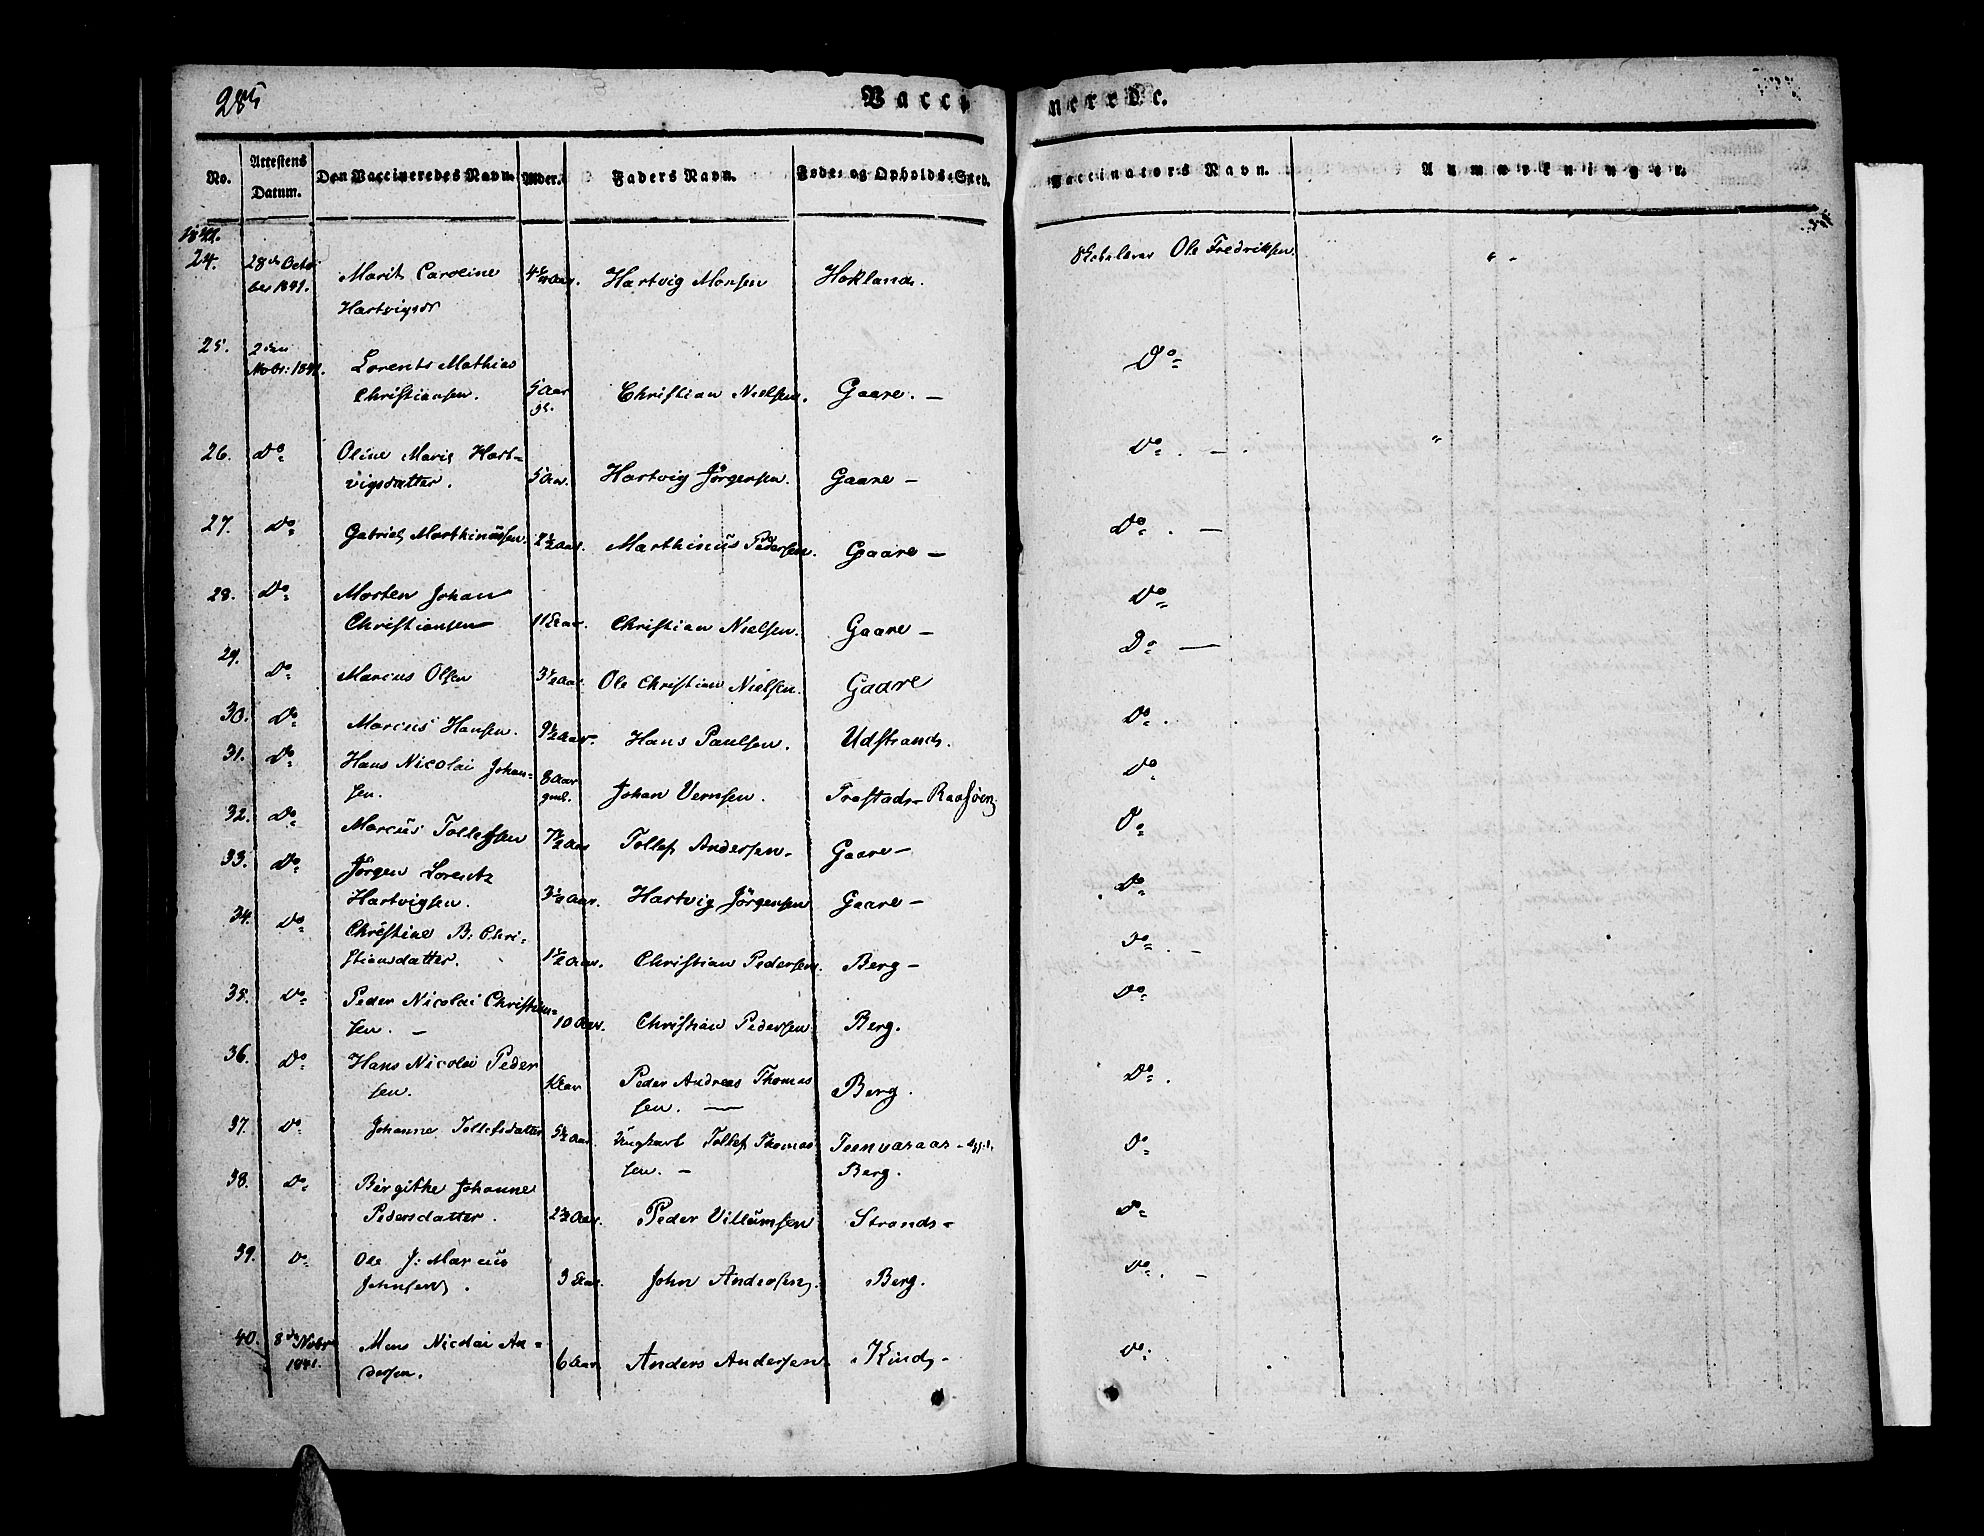 285
Vaccinerede.
No. Attestens Datum. Den Vaccineredes Navn. Alder. Faders Navn. Føde- og Opholds-Sted. Vaccinators Navn. Anmærkninger.
1841.
24. 28de Octo-
ber 1841. Marit Caroline Hartvigsdr 4½ Aar. Hartvig Monsen Hokland. Ole Fredriksen " -
25. 2den
Novbr: 1841. Lorents Mathias
Christiansen. 5 Aar
gl. Christian Nielsen. Gaare. — Do
26. Do Oline Marie Hart-
vigsdatter. 5 Aar. Hartvig Jörgensen. Gaare — Do. — "
27. Do Gabriel Marthinussen. 2½ Aar. Marthinus Pedersen. Gaare — Do. —
28. Do Morten Johan
Christiansen Aar. Christian Nielsen. Gaare — Do
29. Do Marcus Olsen 3½ Aar. Ole Christian Nielsen. Gaare Do —
30. Do Marcus Hansen. 9½ Aar. Hans Paulsen. Udstrand. Do.
31. Do Hans Nicolai Johan-
sen. 8 Aar
gml. Johan Vernsen. Do
32. Do Marcus Tollefsen 7½ Aar Tollef Andersen. Gaare — Do
33. Do Jörgen Lorentz
Hartvigsen. 3½ Aar. Hartvig Jörgensen Gaare — Do
34. Do Christine B: Chri-
stiansdatter. 1½ Aar. Christian Pedersen. Berg — Do. —
35. Do Peder Nicolai Christian-
sen. — 10 Aar. Christian Pedersen Berg. Do
36. Do Hans Nicolai Peder
sen. Aar Peder Andreas Thomas
sen. — Berg. Do.
37. Do Johanne Tollefsdatter 5½ Aar. Ungkarl Tollef Thomas
sen. — Berg. Do
38. Do Birgithe Johanne
Pedersdatter. 2½ Aar. Peder Villumsen Strand - Do
39. Do Ole J: Marcus
Johnsen. 3 Aar. John Andersen. Berg. Do. —
40. 8de Novbr
1841. Mons Nicolai An-
dersen. 6 Aar Anders Andersen Kind - Do